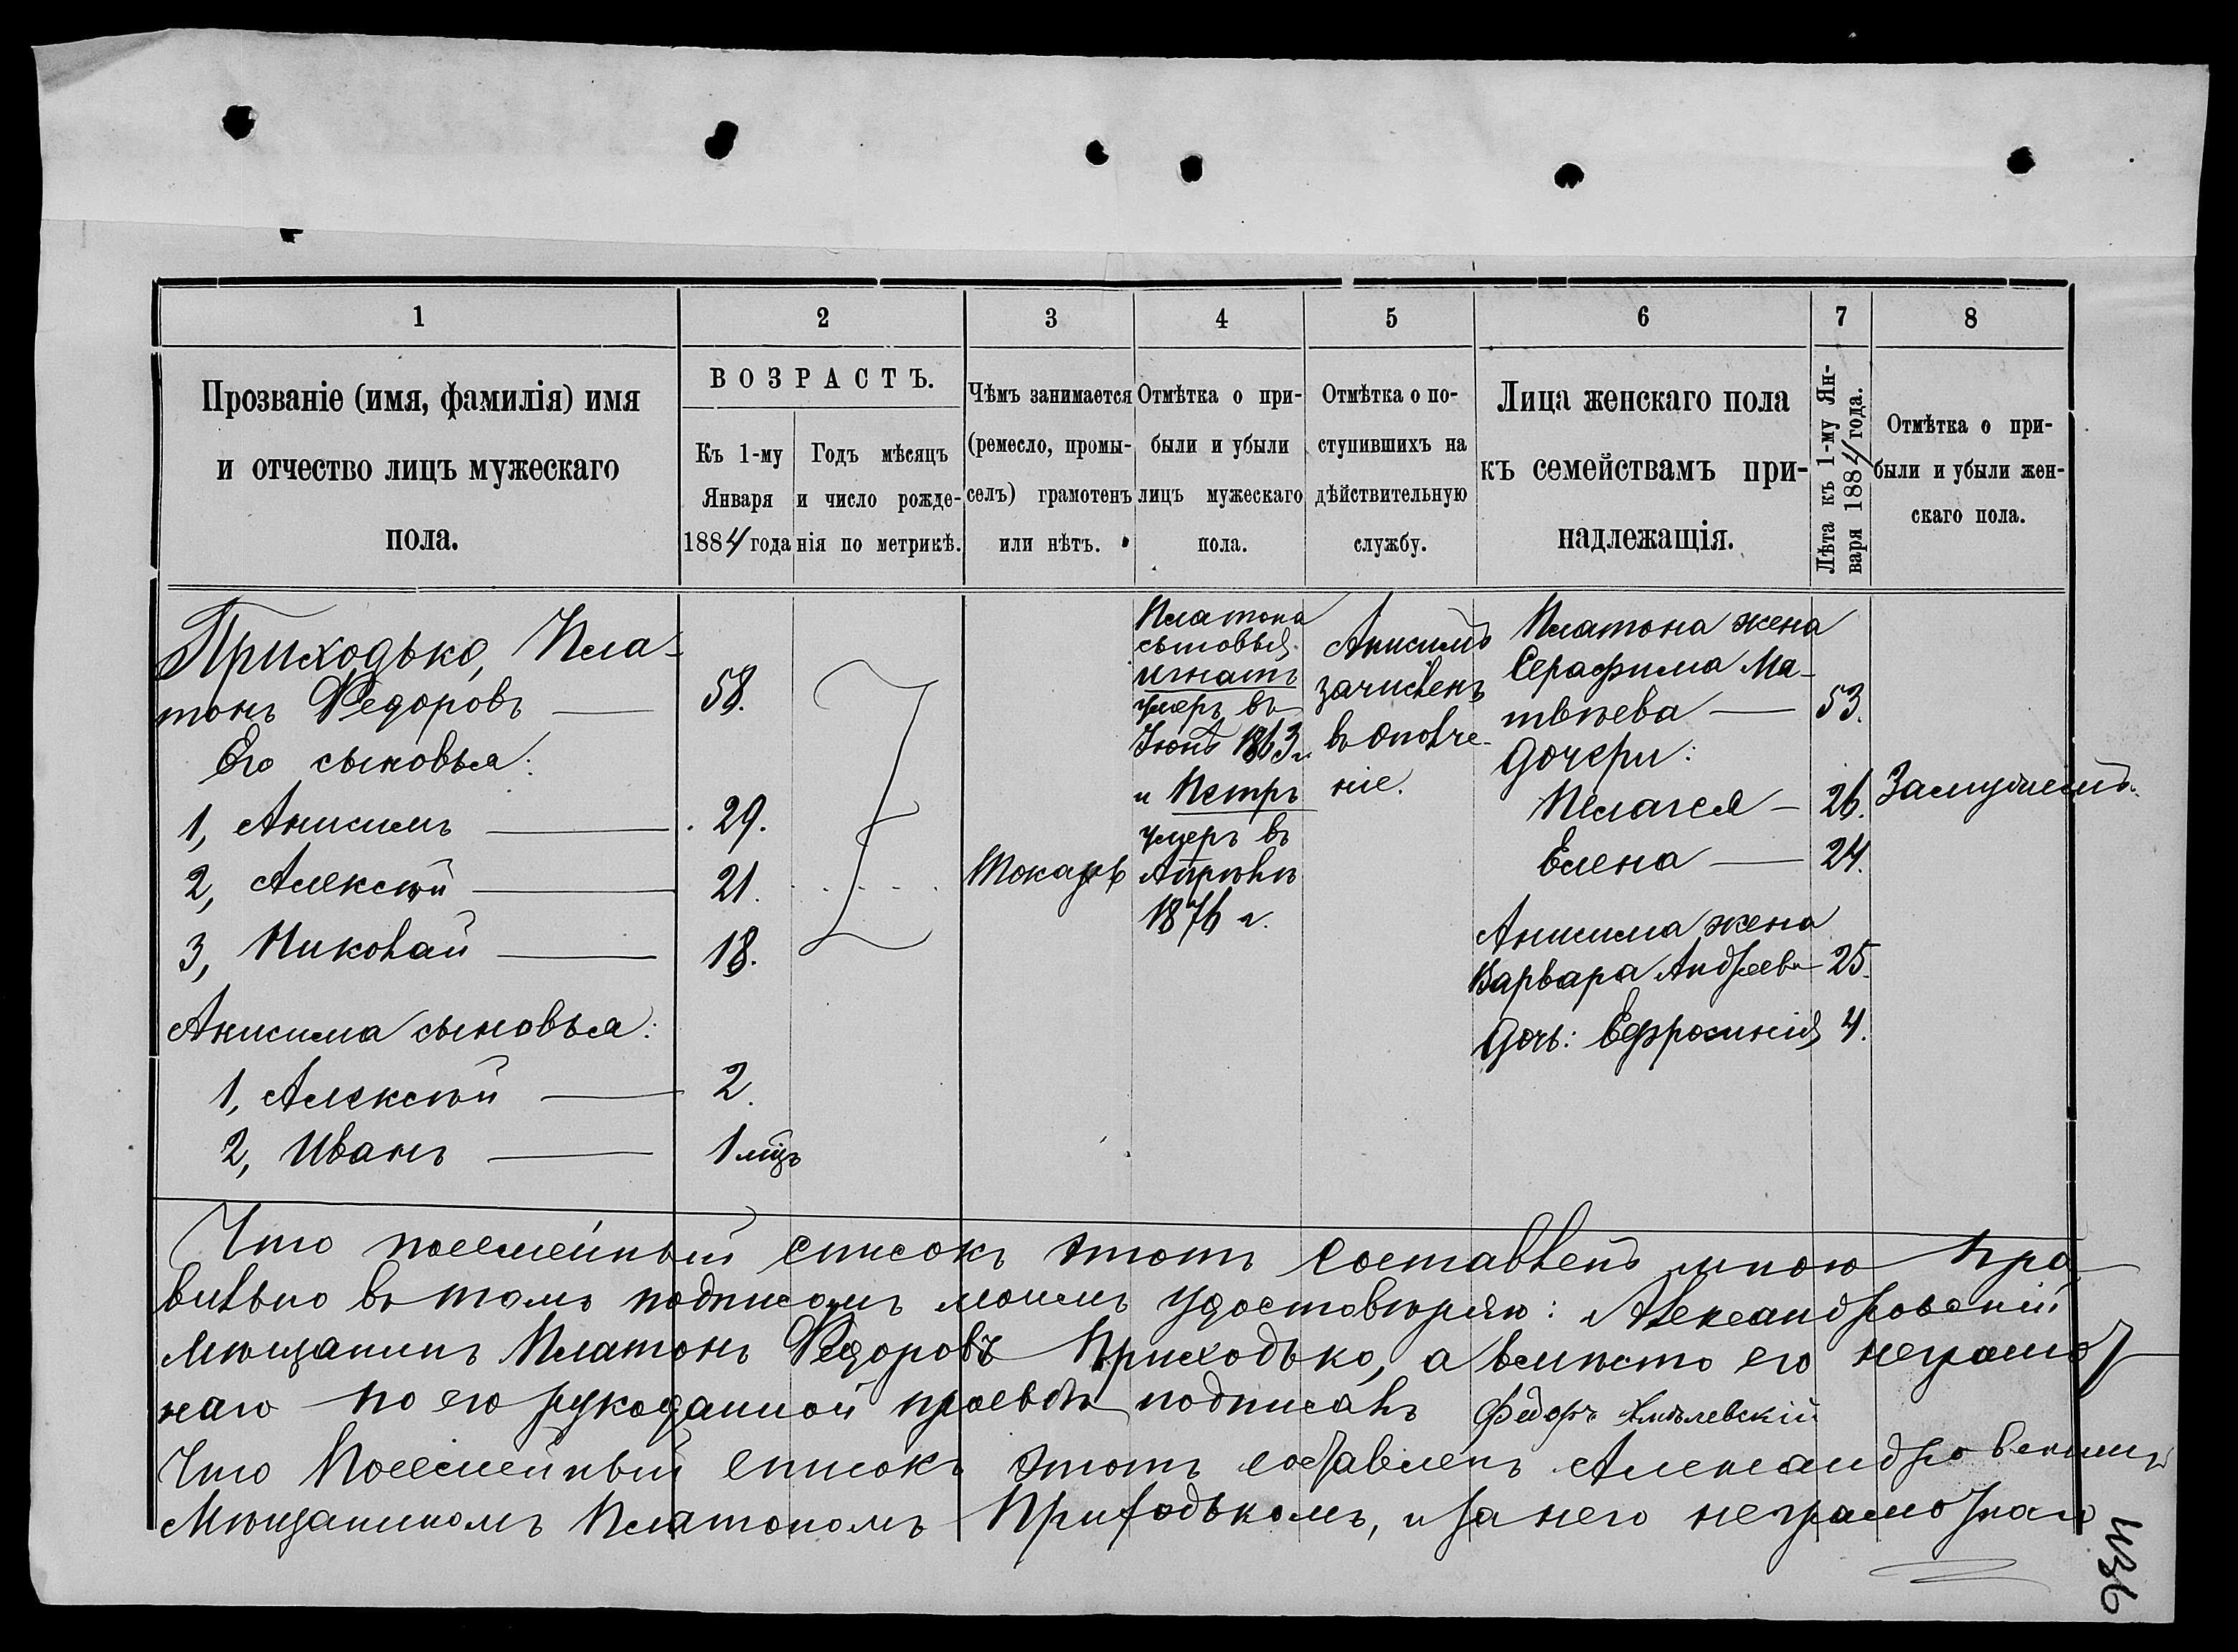 1
2
3
4
5
6
7
8
Прозваніе (имя, фамилія) имя
и отчество лицъ мужескаго
пола.
ВОЗРАСТЪ.
Къ 1-му
Января
1884 года
Годъ мѣсяцъ
и число рожде-
нія по метрикѣ.
Чѣмъ занимается
(ремесло, промы-
селъ) грамотенъ
или нѣтъ.
Отмѣтка о при-
были и убыли
лицъ мужескаго
пола.
Отмѣтка о по-
ступившихъ на
дѣйствительную
службу.
Лица женскаго пола
къ семействамъ при-
надлежащія.
Лѣта къ 1-му Ян-
варя 1884 года.
Отмѣтка о при-
были и убыли жен-
скаго пола.
Приходько, Пла-
тонъ Федоровъ — 58.
Его сыновья:
1, Анисимъ — 29.
2, Алексѣй — 21.
3, Николай — 18.
Анисима сыновья:
1, Алексѣй — 2.
2, Иванъ — 1 мѣцъ
Токарь
Платона
сыновья
Игнатъ
умеръ въ
Іюнѣ 1863 г.
и Петръ
умеръ въ
Апрѣлѣ
1876 г.
Анисимъ
зачисленъ
въ ополче-
ніе.
Платона жена
Серафима Ма-
твѣева — 53.
Дочери:
Пелагея — 26. Замужемъ.
Елена — 24.
Анисима жена
Варвара Андреева 25.
Дочь: Ефросинія 4.
Что посемейный списокъ этотъ составленъ мною пра
вильно въ томъ подписомъ моимъ удостовѣряю: Александровскій
Мѣщанинъ Платонъ Федоровъ Приходько, а вмѣсто его неграмот
наго по его рукоданной прозьбѣ подписалъ Федоръ Хмѣлевскій
Что Посемейный списокъ этотъ составленъ Александровскимъ
Мѣщаниномъ Платономъ Приходькомъ, и за него неграмотнаго
436